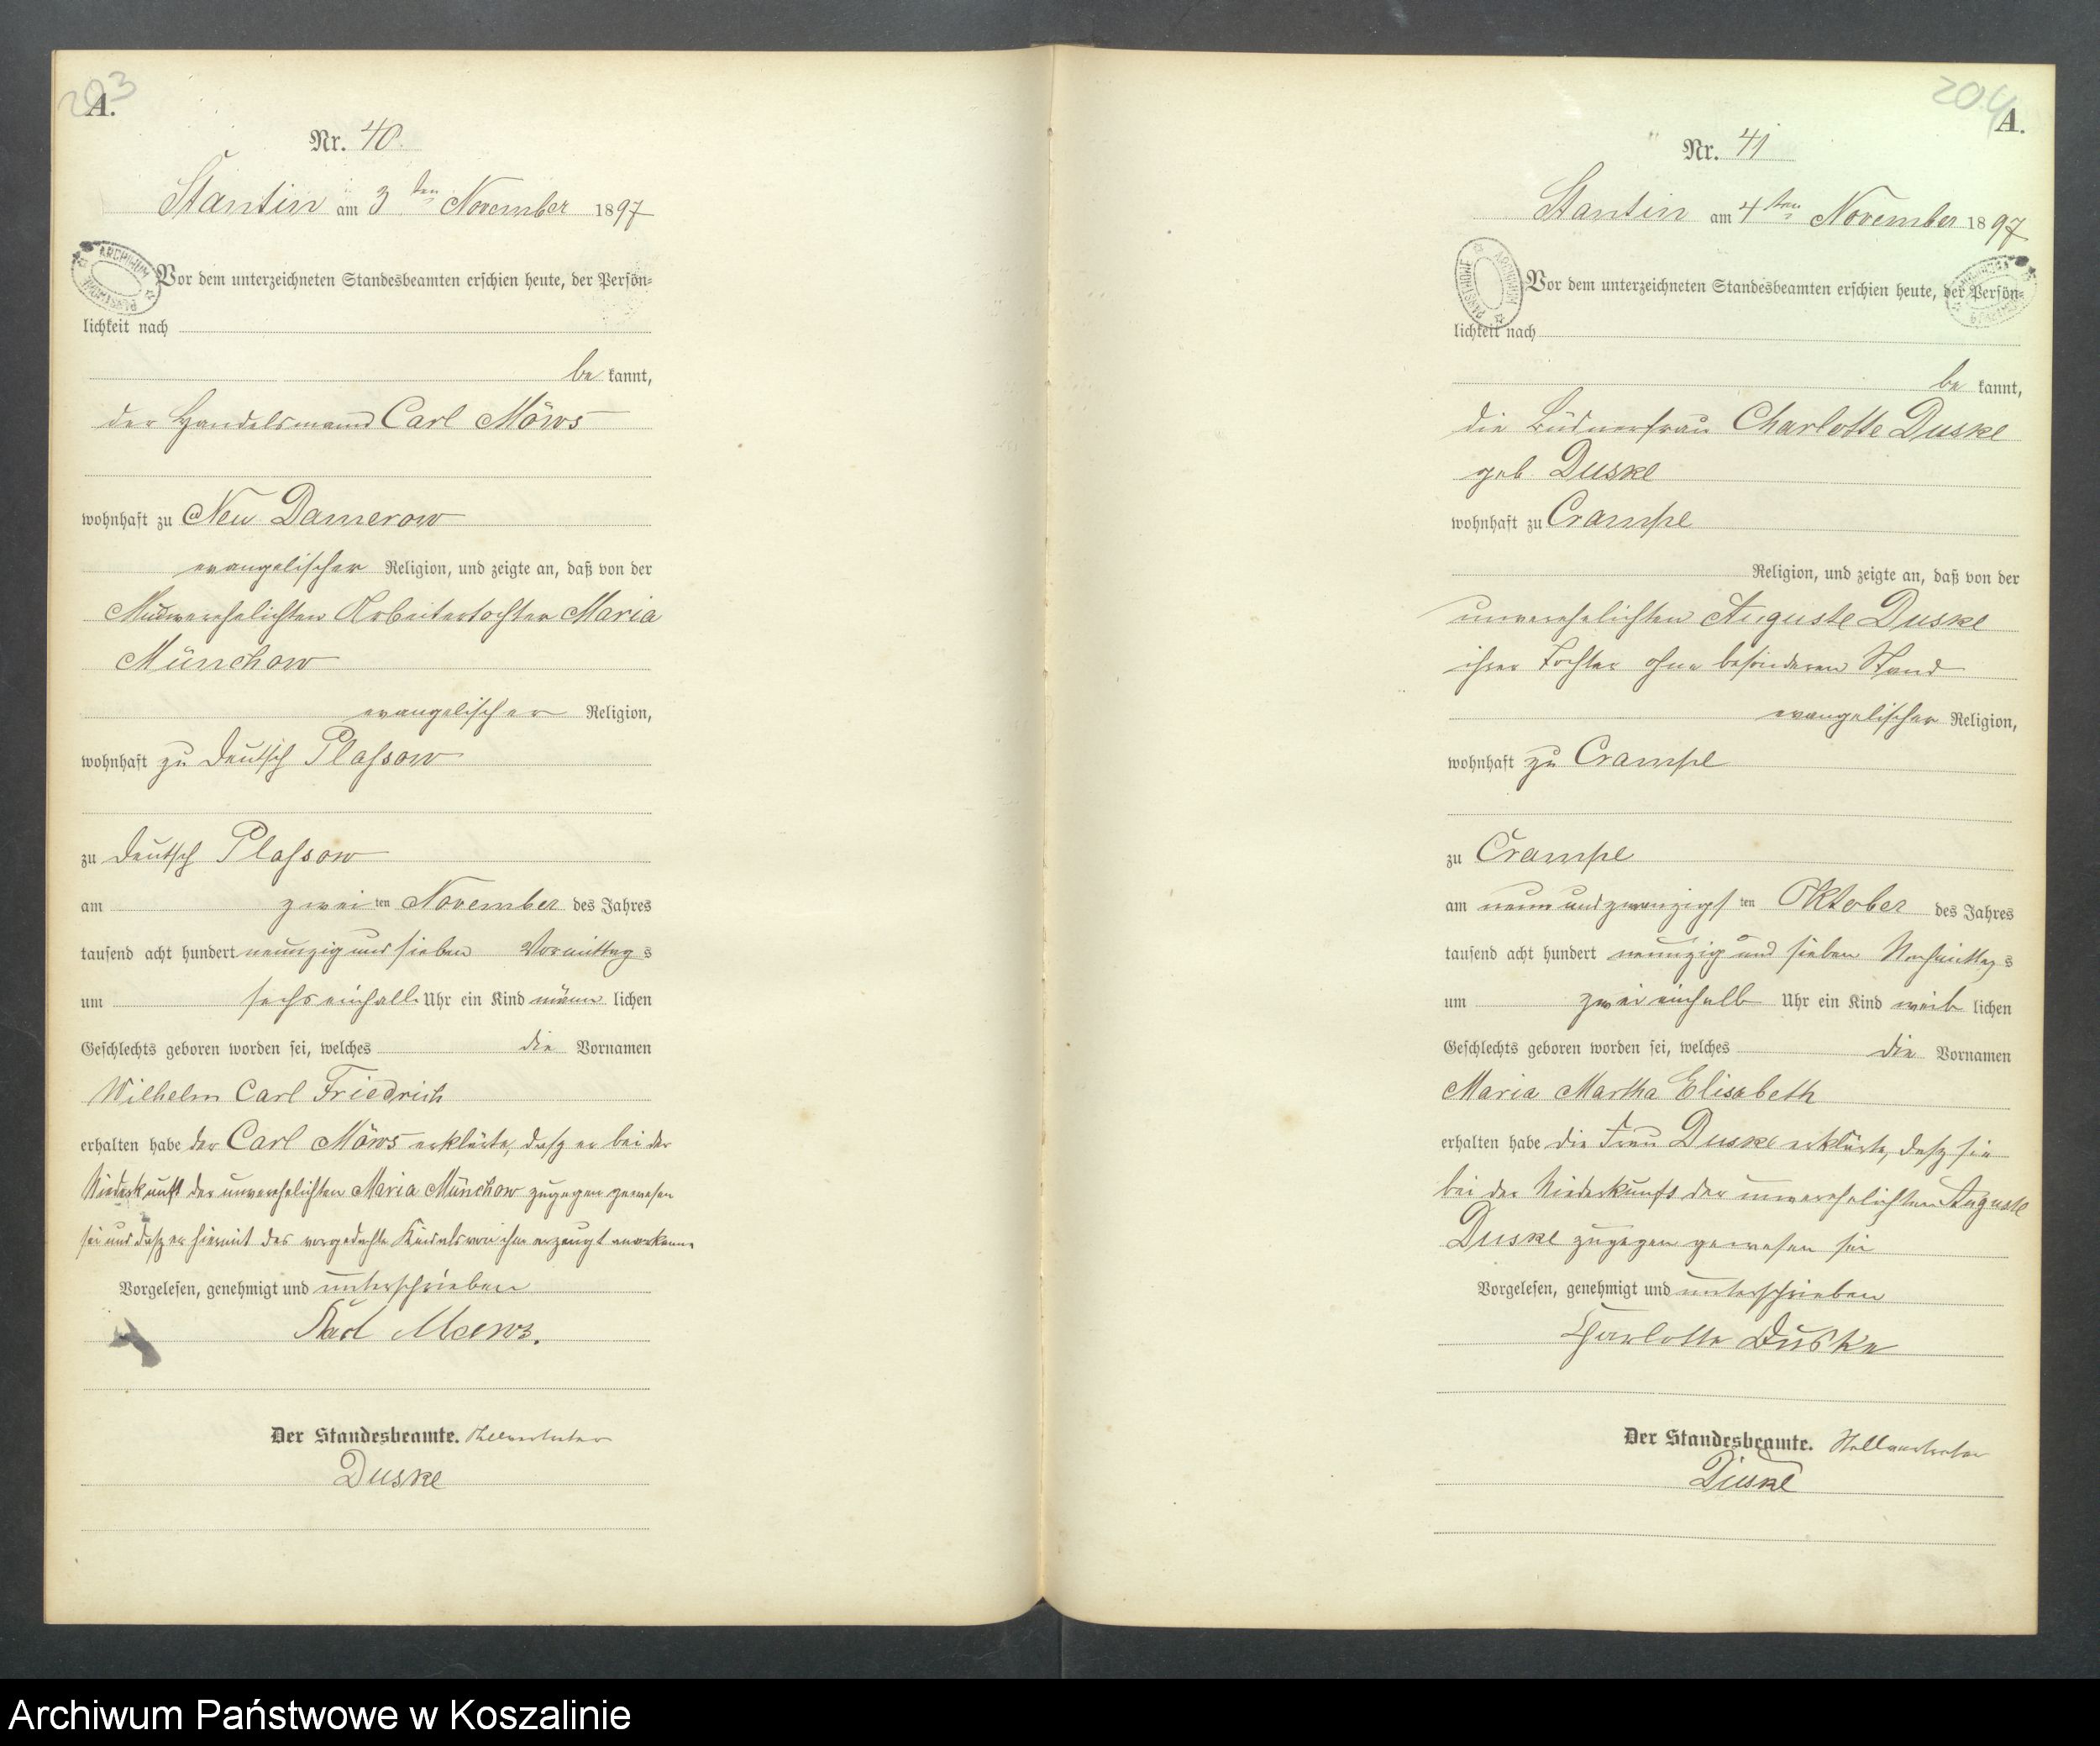 203
A.
Nr. 40.
Stantin am 3ten November 1897
ARCHIWUM PAŃSTWOWE
Vor dem unterzeichneten Standesbeamten erschien heute, der Persön=
lichkeit nach
be kannt,
der Handelsmann Carl Möws
wohnhaft zu Neu Damerow
evangelischer Religion, und zeigte an, daß von der
unverehelichten Arbeitertochter Maria
Münchow
evangelischer Religion,
wohnhaft zu Deutsch Plassow
zu Deutsch Plassow
am zwei ten November des Jahres
tausend acht hundert neunzig und sieben Vormittag s
um sechs einhalb Uhr ein Kind männ lichen
Geschlechts geboren worden sei, welches die Vornamen
Wilhelm Carl Friedrich
erhalten habe der Carl Möws erklärte, daß er bei der
Niederkunft der unverehelichten Maria Münchow zugegen gewesen
sei und daß er hiermit das vorgedachte Kind als von ihm erzeugt anerkenne
Vorgelesen, genehmigt und unterschrieben
Karl Moews.
Der Standesbeamte. Stellvertreter
Duske
204
A.
Nr. 41
Stantin am 4ten November 1897
ARCHIWUM PAŃSTWOWE
Vor dem unterzeichneten Standesbeamten erschien heute, der Persön=
lichkeit nach
be kannt,
die Büdnerfrau Charlotte Duske
geb. Duske
wohnhaft zu Crampe
Religion, und zeigte an, daß von der
unverehelichten Auguste Duske
ihrer Tochter ohne besonderen Stand
evangelischer Religion,
wohnhaft zu Crampe
zu Crampe
am neun und zwanzigs ten Oktober des Jahres
tausend acht hundert neunzig und sieben Nachmittag s
um zwei einhalb Uhr ein Kind weib lichen
Geschlechts geboren worden sei, welches die Vornamen
Maria Martha Elisabeth
erhalten habe die Frau Duske erklärte, daß sie
bei der Niederkunft der unverehelichten Auguste
Duske zugegen gewesen sei
Vorgelesen, genehmigt und unterschrieben
Charlotte Duske
Der Standesbeamte. Stellvertreter
Duske
Archiwum Państwowe w Koszalinie